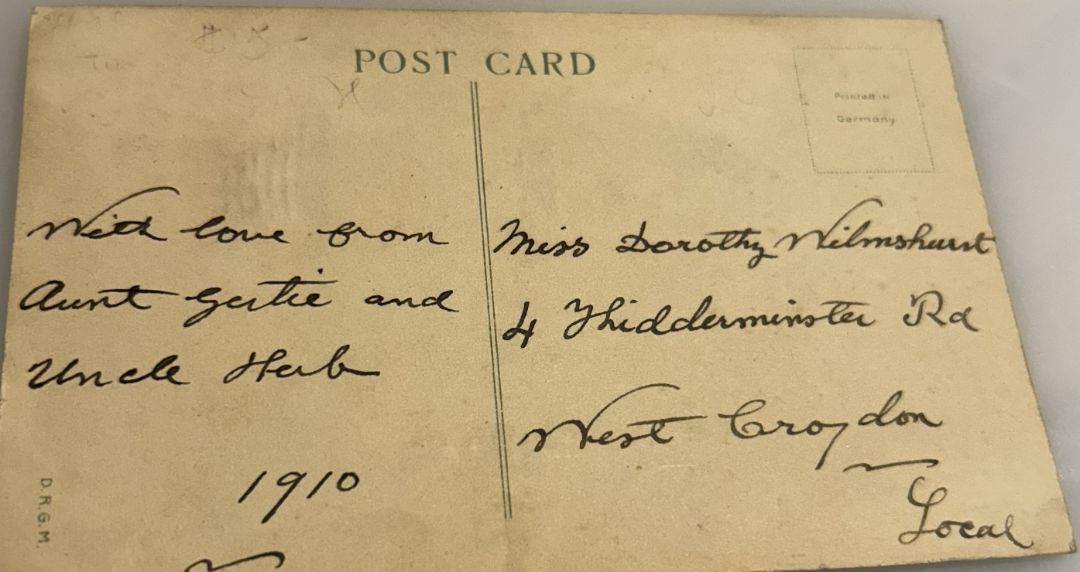 POST CARD
Printed in
Germany
With love from
Aunt Gertie and
Uncle Herb
1910
D.R.G.M.
Miss Dorothy Wilmshurst
4 Khidderminster Rd
West Croydon
Local